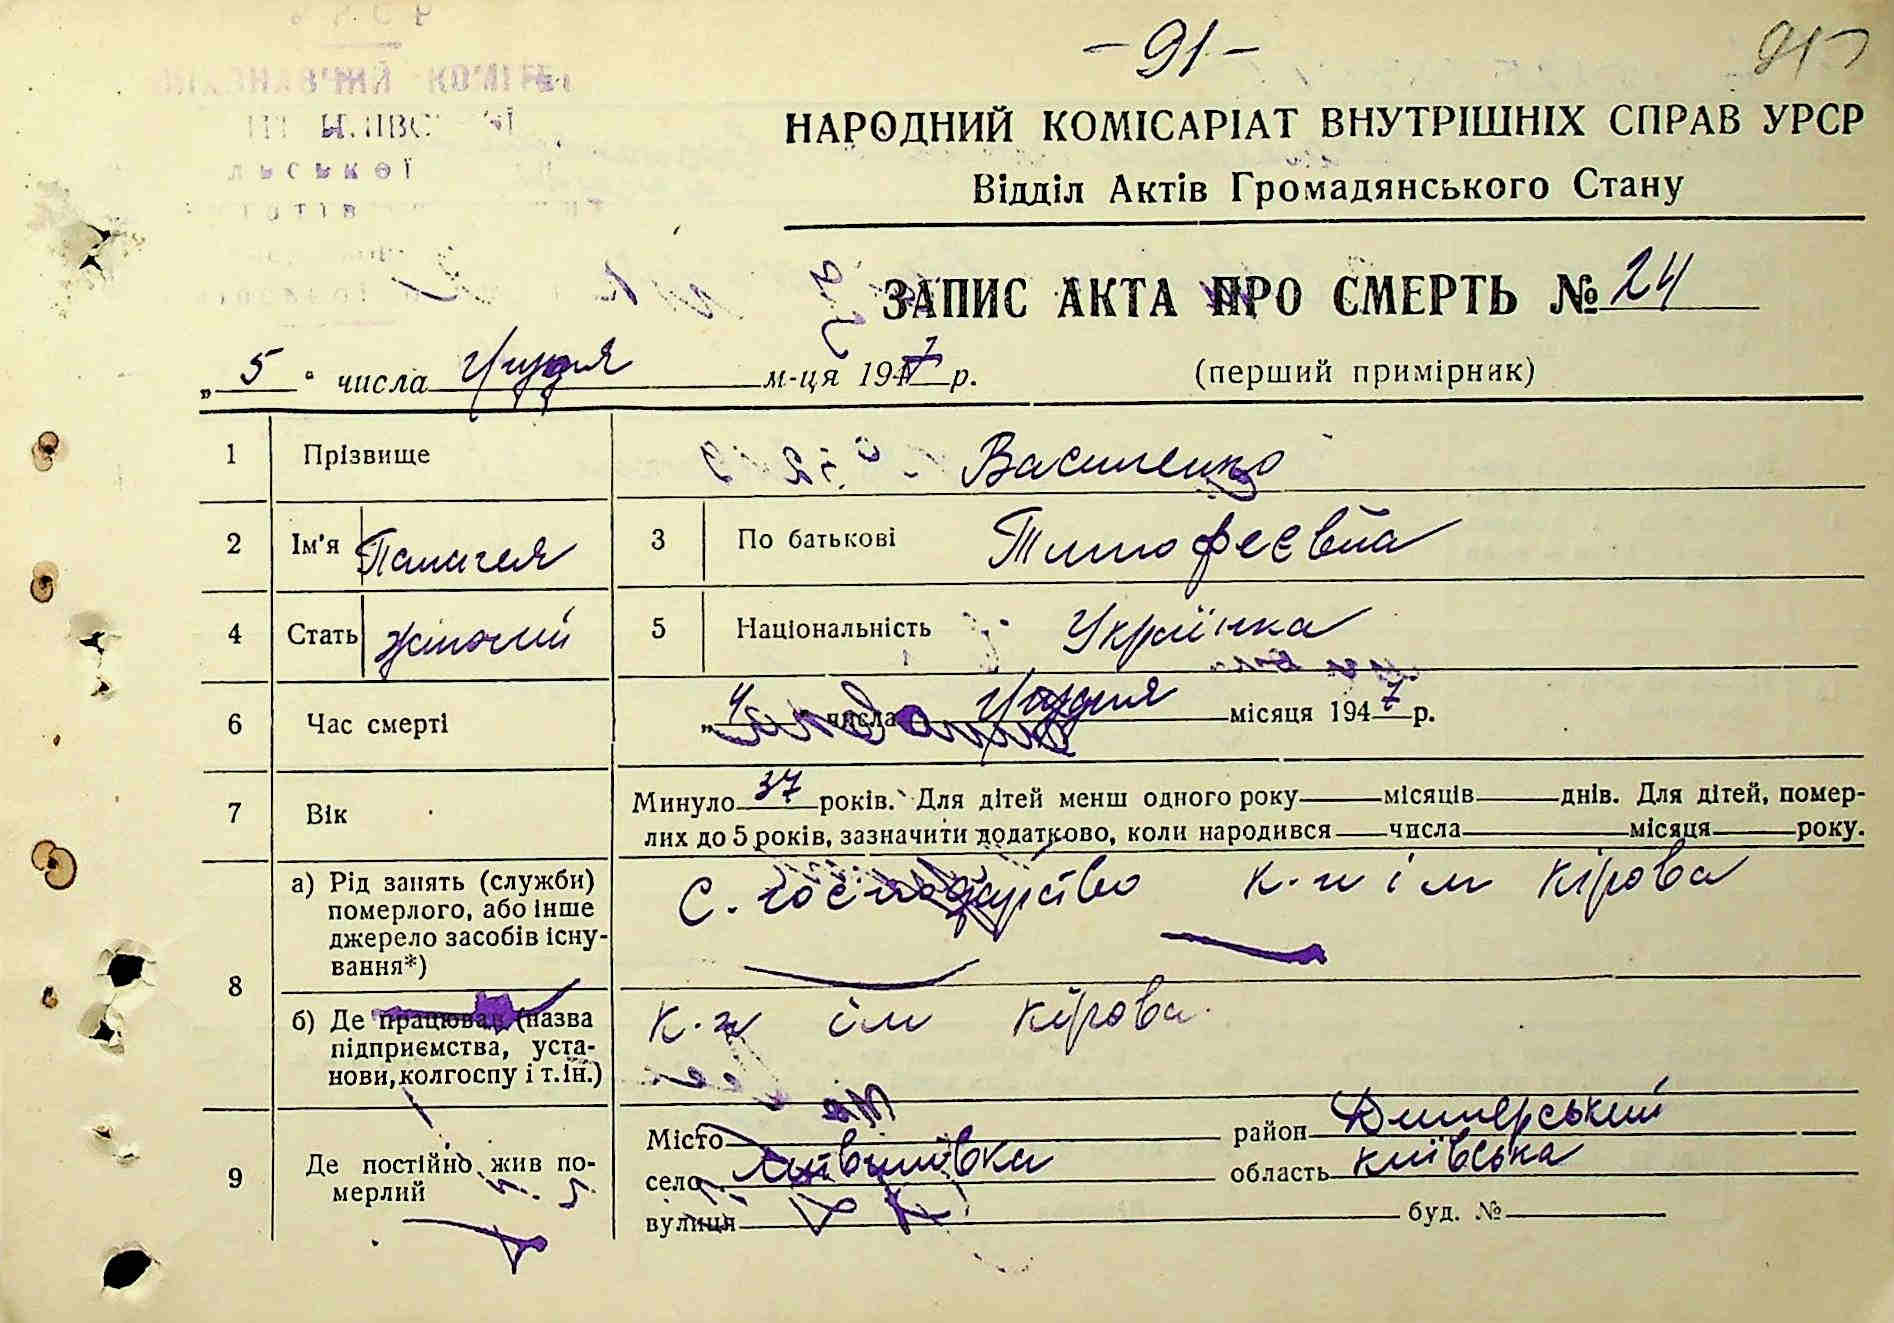 - 91 -
НАРОДНИЙ КОМІСАРІАТ ВНУТРІШНІХ СПРАВ УРСР
Відділ Актів Громадянського Стану
ЗАПИС АКТА ПРО СМЕРТЬ № 24
„ 5 “ числа Грудня м-ця 1947 р. (перший примірник)
1 Прізвище Василенко
2 Ім'я Палагея 3 По батькові Тимофеєвна
4 Стать жіночий 5 Національність Українка
6 Час смерті „ 4 “ числа Грудня місяця 1947 р.
7 Вік Минуло 37 років. Для дітей менш одного року місяців днів. Для дітей, помер-
лих до 5 років, зазначити додатково, коли народився числа місяця року.
8 а) Рід занять (служби) померлого, або інше джерело засобів існу-вання*) С. господарство к-п ім Кірова
б) Де працював (назва підприємства, уста-нови, колгоспу і т.ін.) к-п ім Кірова
9 Де постійно жив по-мерлий Місто район Димерський
село Литвинівка область Київська
вулиця буд. №